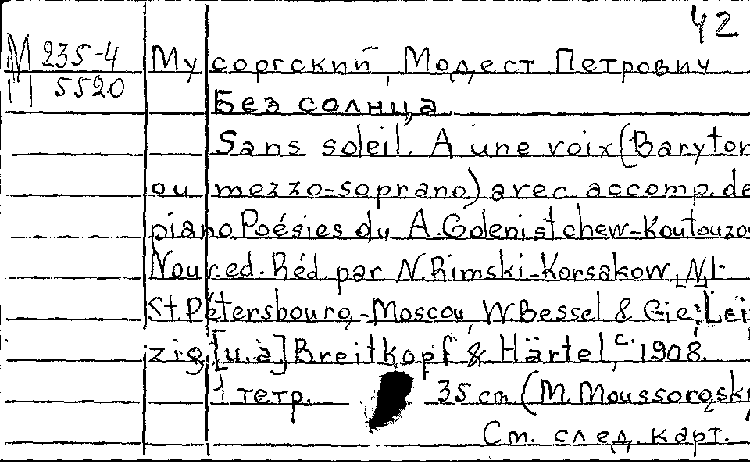 42
М 235-4 Мусоргский, Модест Петрович
5520
Без солнца
Sans soleil. A une voix (Baryton
ou mezzo-soprano) avec accomp. de
piano Poésies du A. Golenistchew-Koutouzow
Nouv. ed. Réd par N. Rimski-Korsakow, N1-
St. Pétersbourg-Moscou, W. Bessel & Cie; Leip
zig, [u. a.] Breitkopf & Härtel, c. 1908.
1 тетр. 35 cm (M. Moussorgski
См. след. карт.